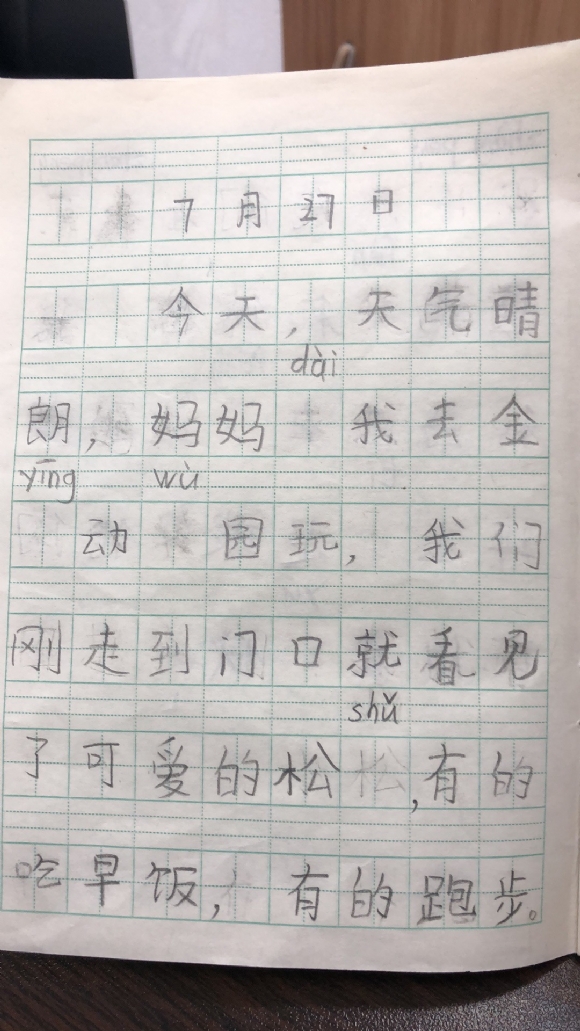 7月27日
今天,天气晴
dài
朗,妈妈 我去金
yīng wù
动 园玩,我们
刚走到门口就看见
shǔ
了可爱的松 ,有的
吃早饭,有的跑步。